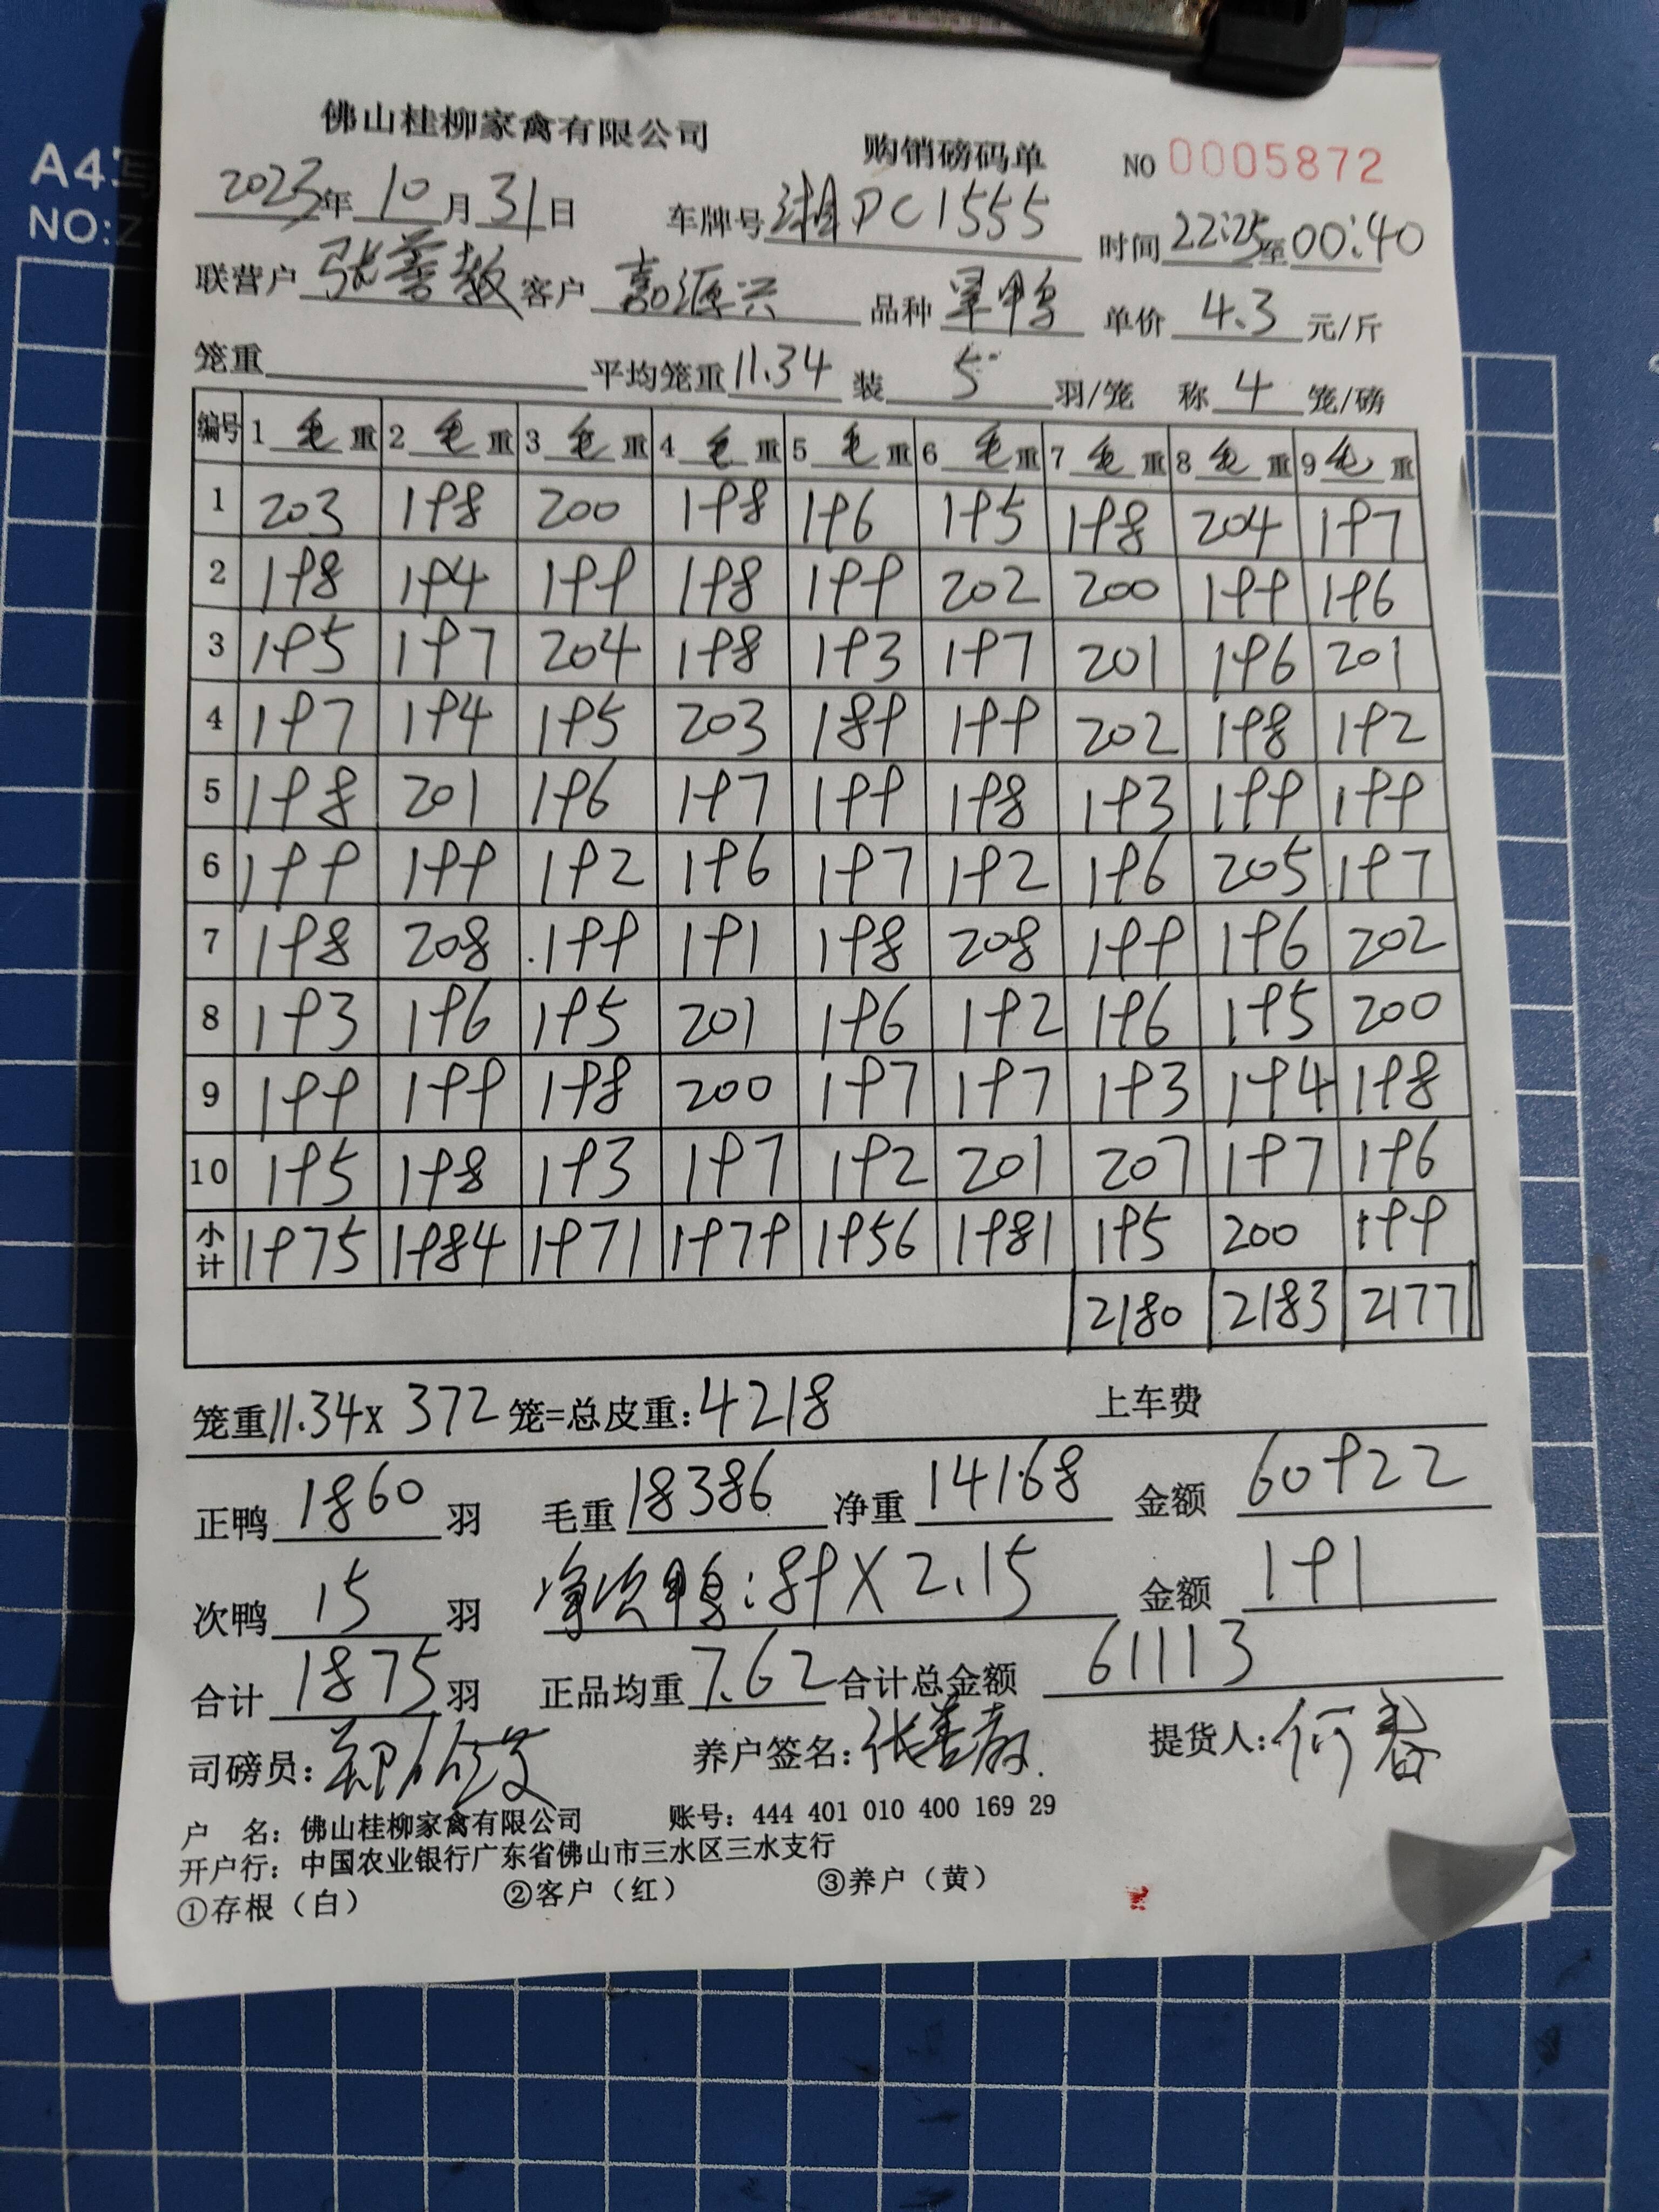 A4
NO:Z
佛山桂柳家禽有限公司 购销磅码单 NO 0005872
2023年10月31日 车牌号 湘DC1555 时间 22:25至00:40
联营户 张善教 客户 嘉源兴 品种 单鸭 单价 4.3 元/斤
笼重 平均笼重 11.34 装 5 羽/笼 称 4 笼/磅
编号 1 毛 重 2 毛 重 3 毛 重 4 毛 重 5 毛 重 6 毛 重 7 毛 重 8 毛 重 9 毛 重
1 203 198 200 198 196 195 198 204 197
2 198 194 199 198 199 202 200 199 196
3 195 197 204 198 193 197 201 196 201
4 197 194 195 203 189 199 202 198 192
5 198 201 196 197 199 198 193 199 199
6 199 199 192 196 197 192 196 205 197
7 198 208 199 191 198 208 199 196 202
8 193 196 195 201 196 192 196 195 200
9 199 199 198 200 197 197 193 194 198
10 195 198 193 197 192 201 207 197 196
小计 1975 1984 1971 1979 1956 1981 195 200 199
2180 2183 2177
笼重 11.34 x 372 笼=总皮重: 4218 上车费
正鸭 1860 羽 毛重 18386 净重 14168 金额 60922
次鸭 15 羽 净次鸭: 89 X 2.15 金额 191
合计 1875 羽 正品均重 7.62 合计总金额 61113
司磅员: 养户签名: 张善教 提货人: 何春
户 名: 佛山桂柳家禽有限公司 账号: 444 401 010 400 169 29
开户行: 中国农业银行广东省佛山市三水区三水支行
①存根（白） ②客户（红） ③养户（黄）